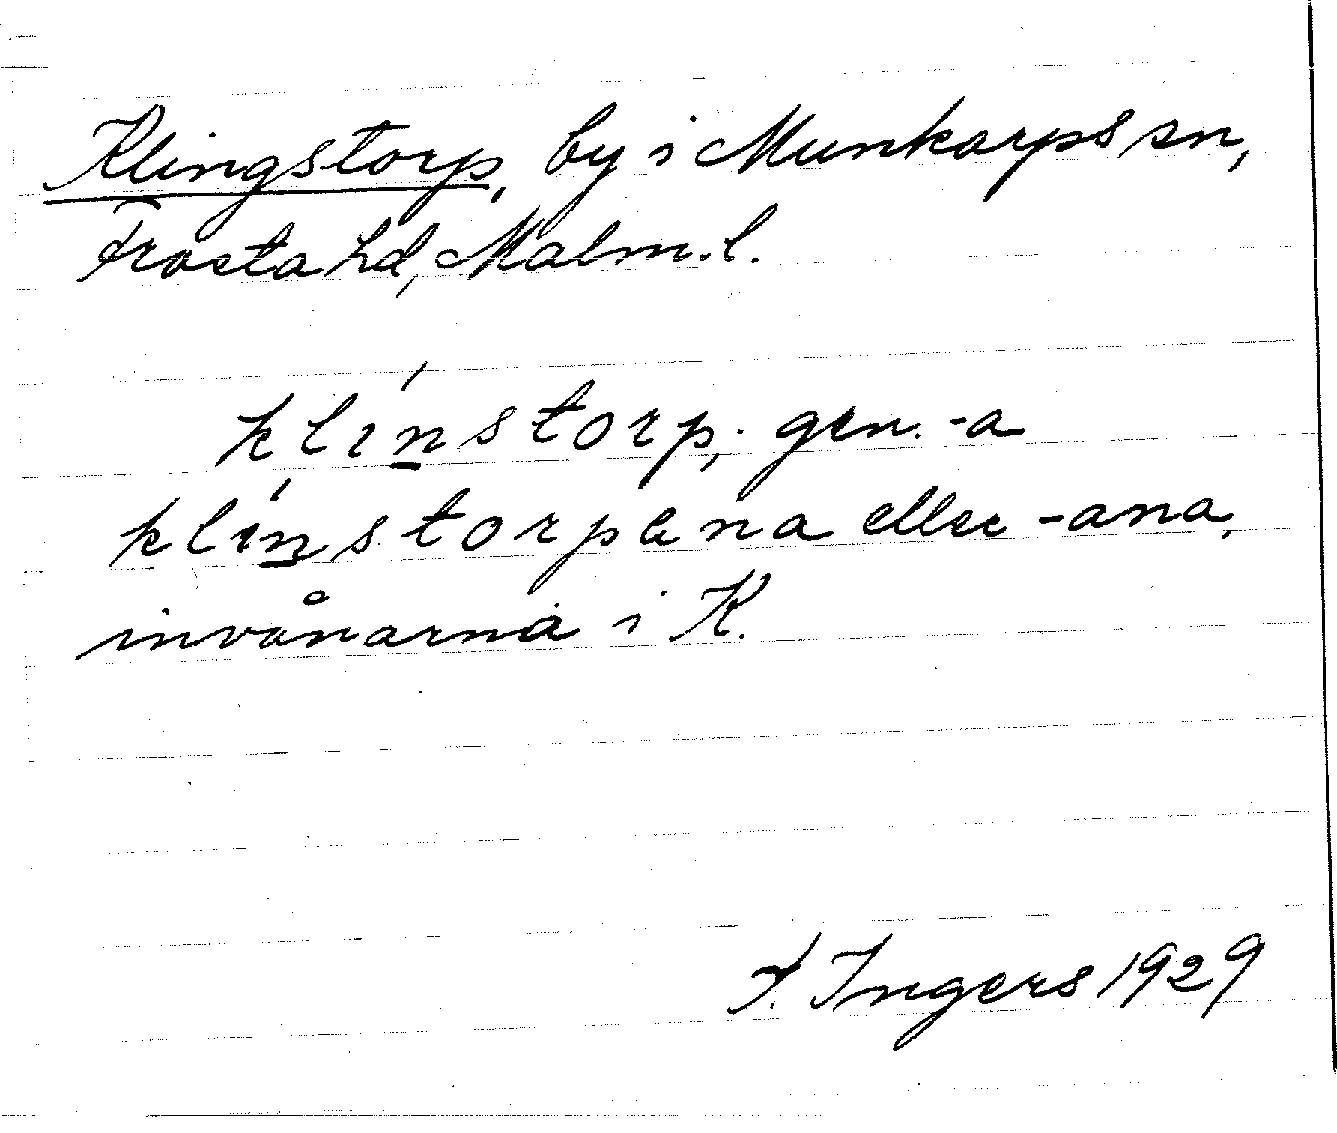 Klingstorp, by i Munkarps sn,
Frosta hd, Malm. l.
klínstorp; gen. -a
klínstorpena eller -ana,
invånarna i K.
I. Ingers 1929